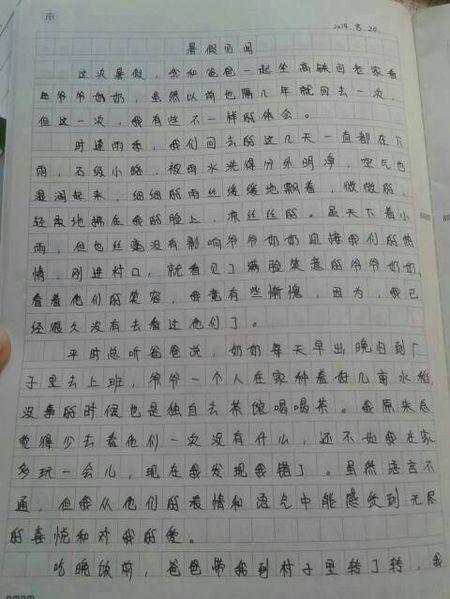 2014.8.20.
暑假见闻
这次暑假，我和爸爸一起坐高铁回老家看
望爷爷奶奶，虽然以前也隔几年就回去一次，
但这一次，我有些不一样的体会。
时逢雨季，我们回去的这几天一直都在下
雨，石级小路，被雨水洗得分外明净，空气也
湿润起来，细细的雨丝缓缓地飘着，微微的、
轻柔地拂在我的脸上，凉丝丝的。虽天下着小
雨，但也丝毫没有影响爷爷奶奶迎接我们的热
情，刚进村口，就看见了满脸笑意的爷爷奶奶，
看着他们的笑容，我竟有些惭愧，因为，我已
经很久没有去看过他们了。
平时总听爸爸说，奶奶每天早出晚归到厂
子里去上班，爷爷一个人在家种着好几亩水稻，
没事的时候也是独自去茶馆喝喝茶。我原来总
觉得少去看他们一次没有什么，还不如我在家
多玩一会儿，现在我发现我错了。虽然语言不
通，但我从他们的表情和语气中能感受到无尽
的喜悦和对我的爱。
吃晚饭前，爸爸带我到村子里转了转，我